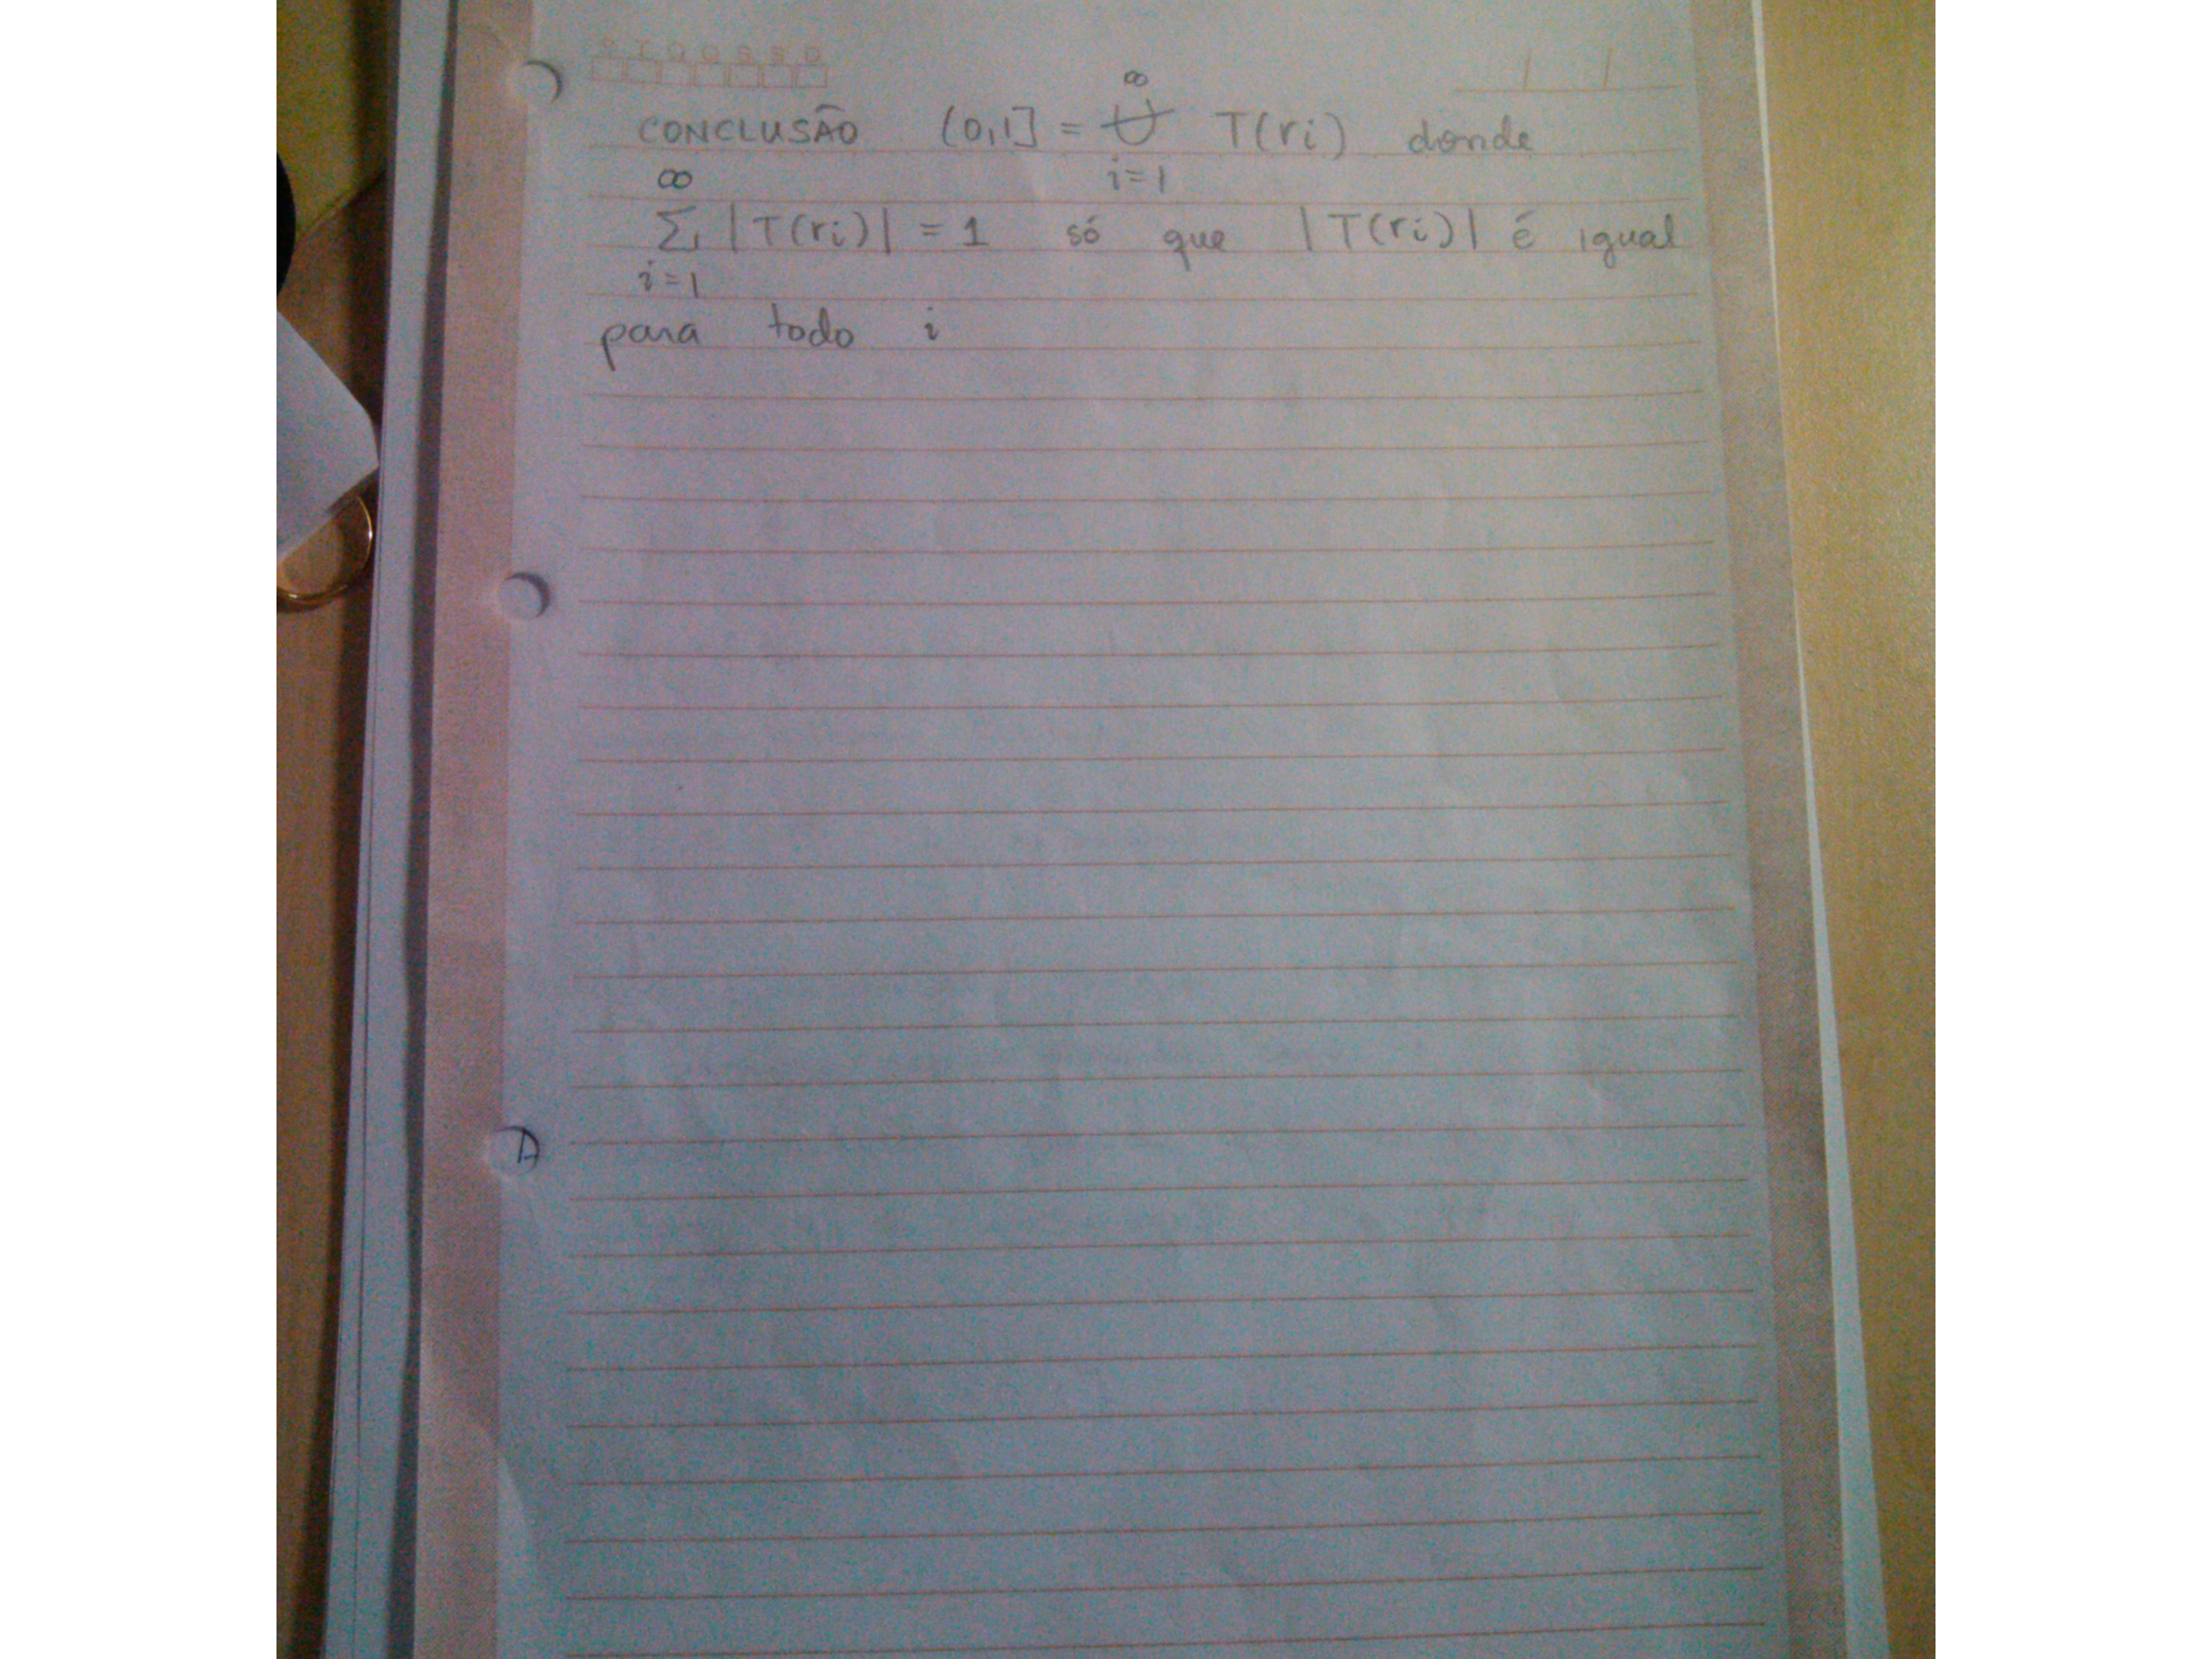 D T Q Q S S D
CONCLUSÃO (0,1] = ∞ ⊎ i=1 T(ri) donde
∞ Σ i=1 |T(ri)| = 1 só que |T(ri)| é igual
para todo i
A